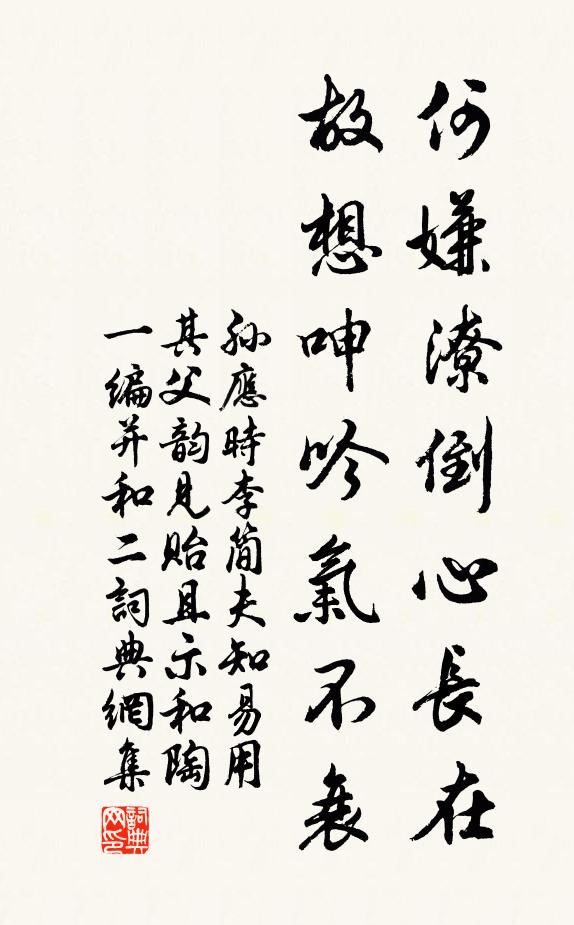 何嫌潦倒心長在
故想呻吟氣不衰
孫應時李簡夫知易用
其父韵見貽且示和陶
一編并和二詞典網集
詞典网印